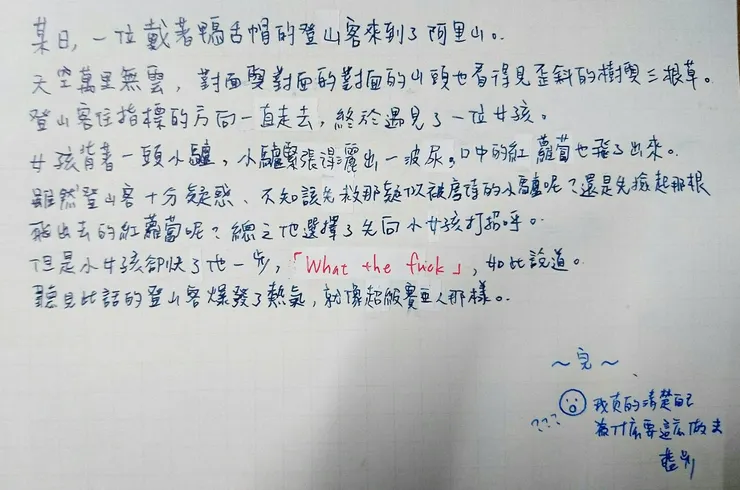 某日，一位戴著鴨舌帽的登山客來到了阿里山。
天空萬里無雲，對面與對面的對面的山頭也看得見歪斜的樹與三根草。
登山客往指標的方向一直走去，終於遇見了一位女孩。
女孩背著一頭小驢，小驢緊張得灑出一波尿。口中的紅蘿蔔也飛了出來。
雖然登山客十分疑惑、不知該先救那疑似被虐待的小驢呢？還是先撿起那根
飛出去的紅蘿蔔呢？總之他選擇了先向小女孩打招呼。
但是小女孩卻快了他一步，「What the fuck」，如此說道。
聽見此話的登山客爆發了熱氣，就像超級賽亞人那樣。
～完～
??? 我真的清楚自己
為什麼要這麼做